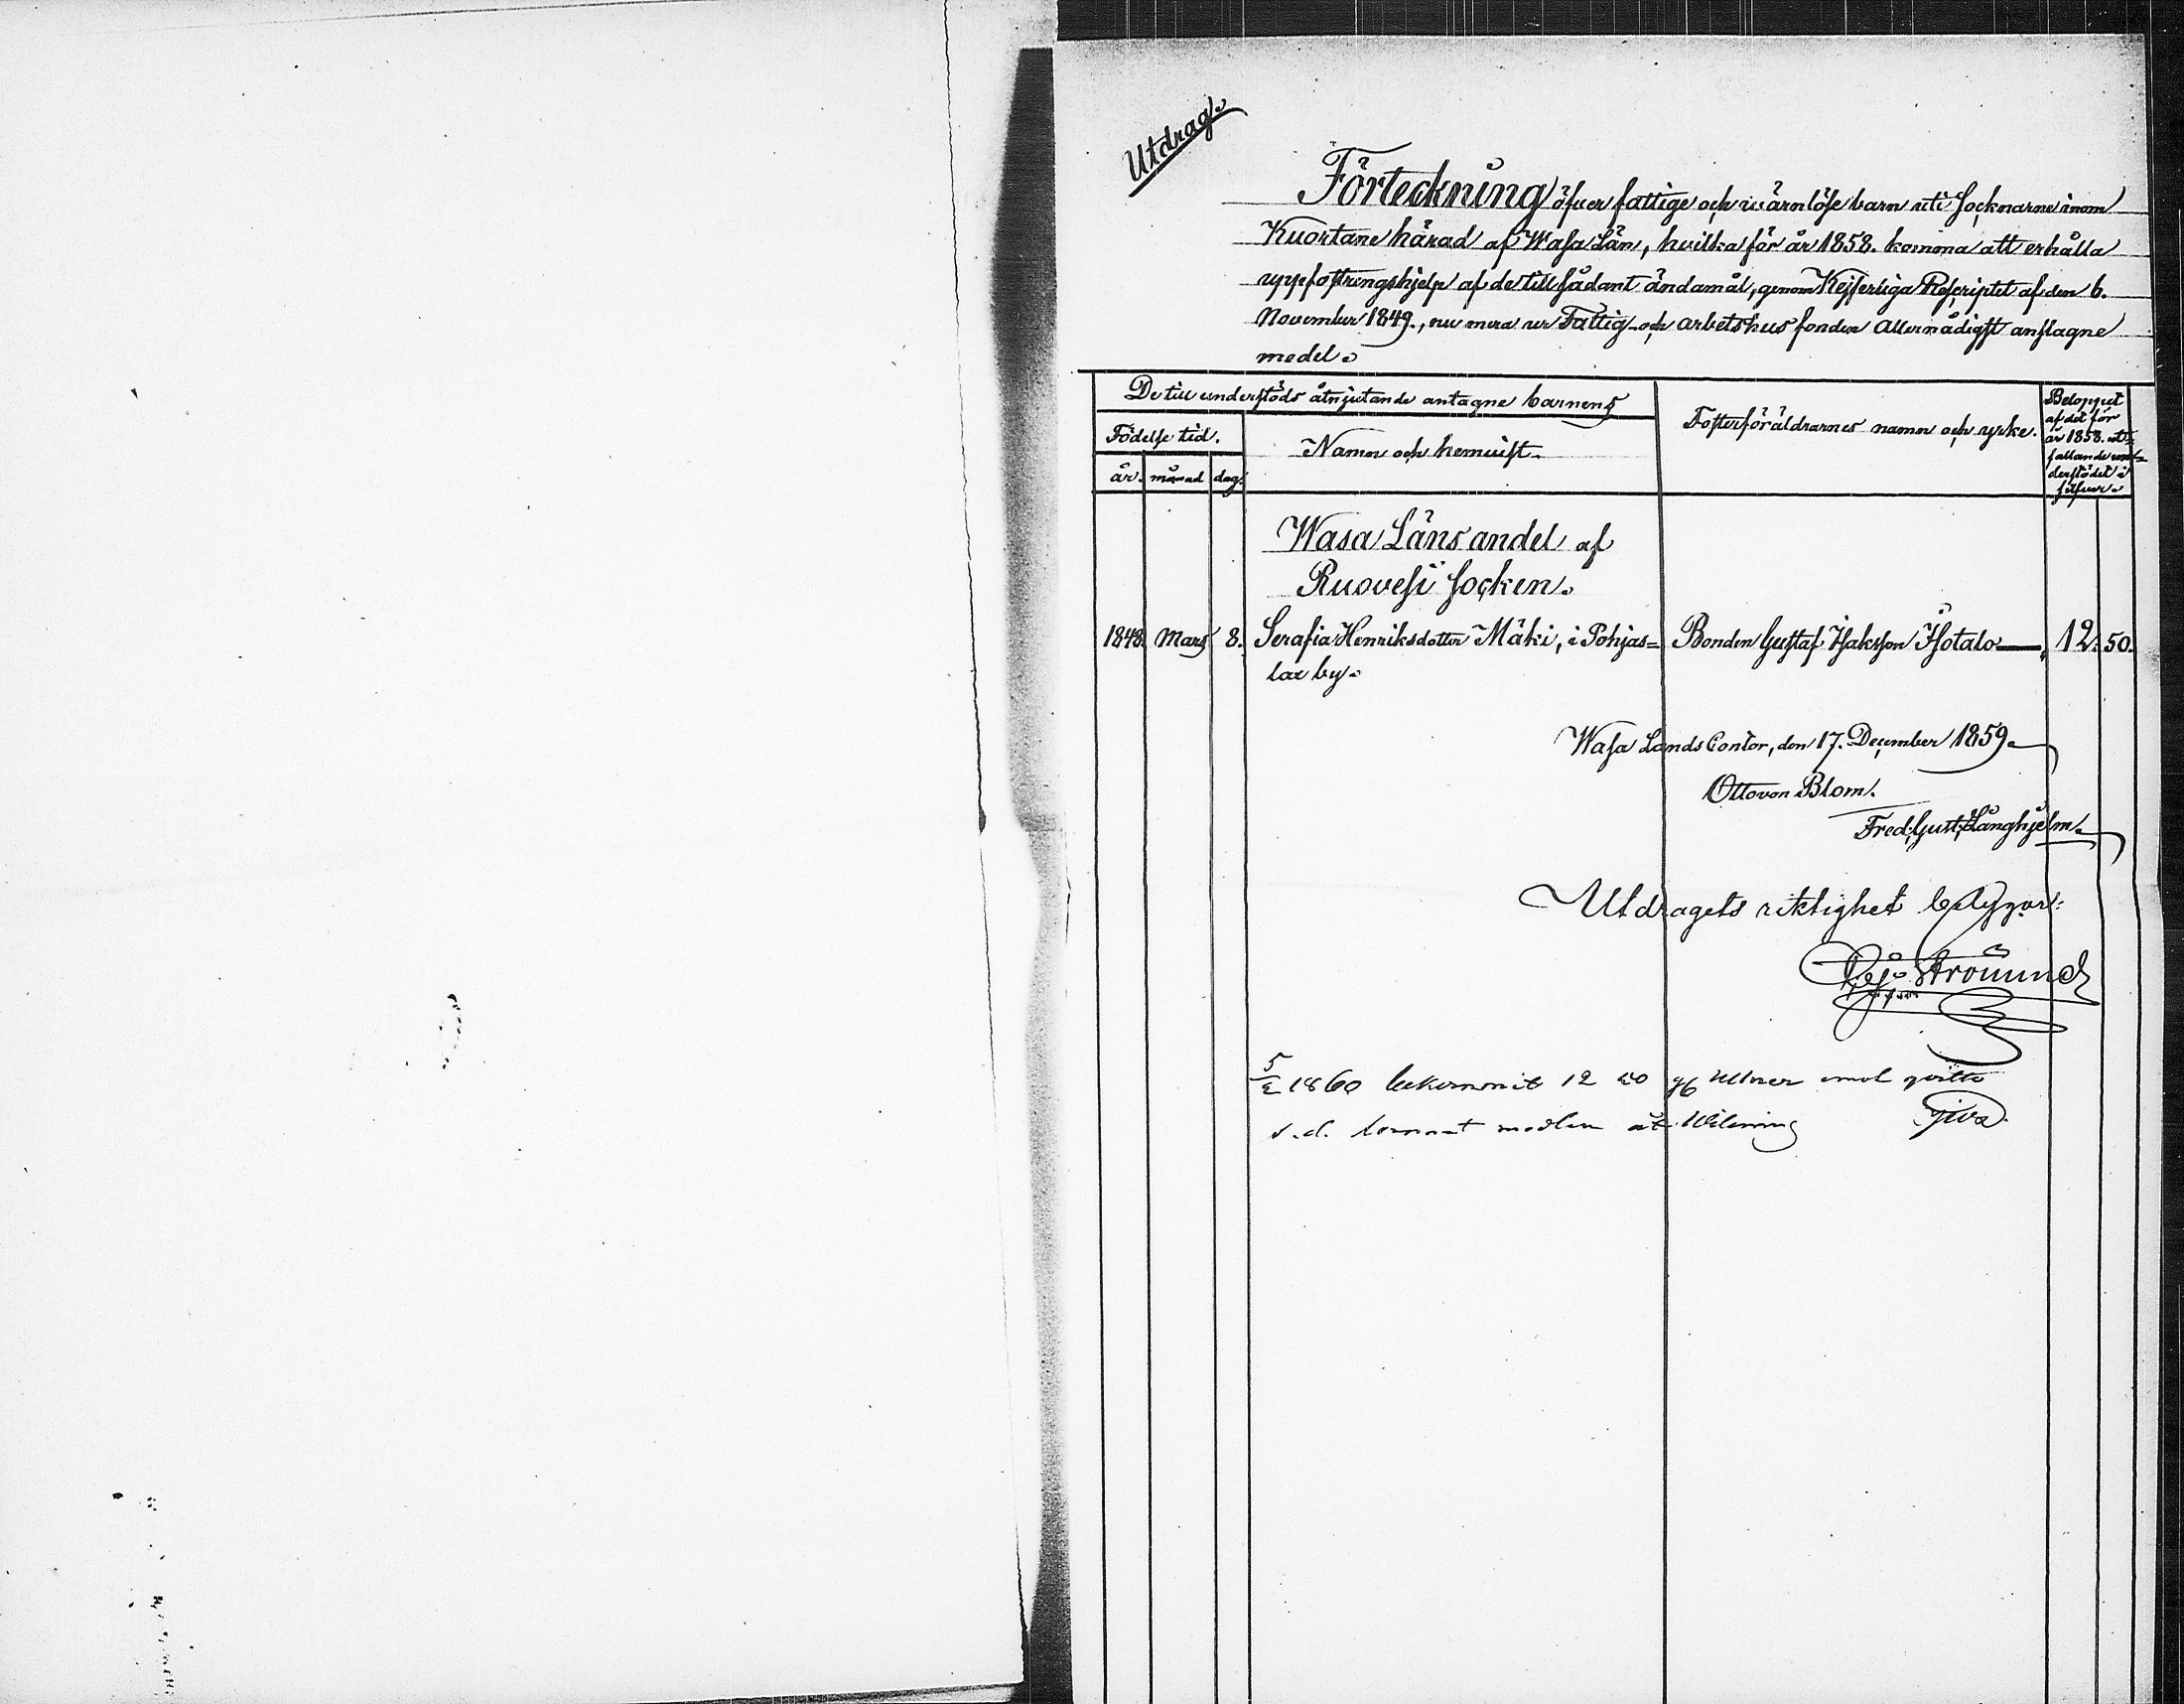 Utdrag.
Förteckning öfver fattige och wärnlöse barn uti Socknarne inom
Kuortane härad af Wasa Län, hvilka för år 1858. komma att erhålla
uppfostringshjelp af de till sådant ändamål, genom Kejserliga Rescriptet af den 6.
November 1849., nu mera ur Fattig- och arbetshus fonden Allernådigst anslagne
medel.
De till understöds åtnjutande antagne barnens
Fosterföräldrarnes namn och yrke.
Beloppet
af det för
år 1858. ut-
fallande un-
derstödet i
silfver.
Födelse tid.
Namn och hemvist.
år. månad dag.
Wasa Läns andel af
Ruovesi Socken.
1848. Mars 8. Serafia Henriksdotter Mäki, i Pohjas= Bonden Gustaf Isaksson Isotalo 12. 50.
lax by.
Wasa Lands Contor, den 17. December 1859.
Otto von Blom.
Fred. Gust. Långhjelm.
Utdragets riktighet betygar:
5/2 1860 bekommit 12 50 mot qvitto
s.d. medlen åt